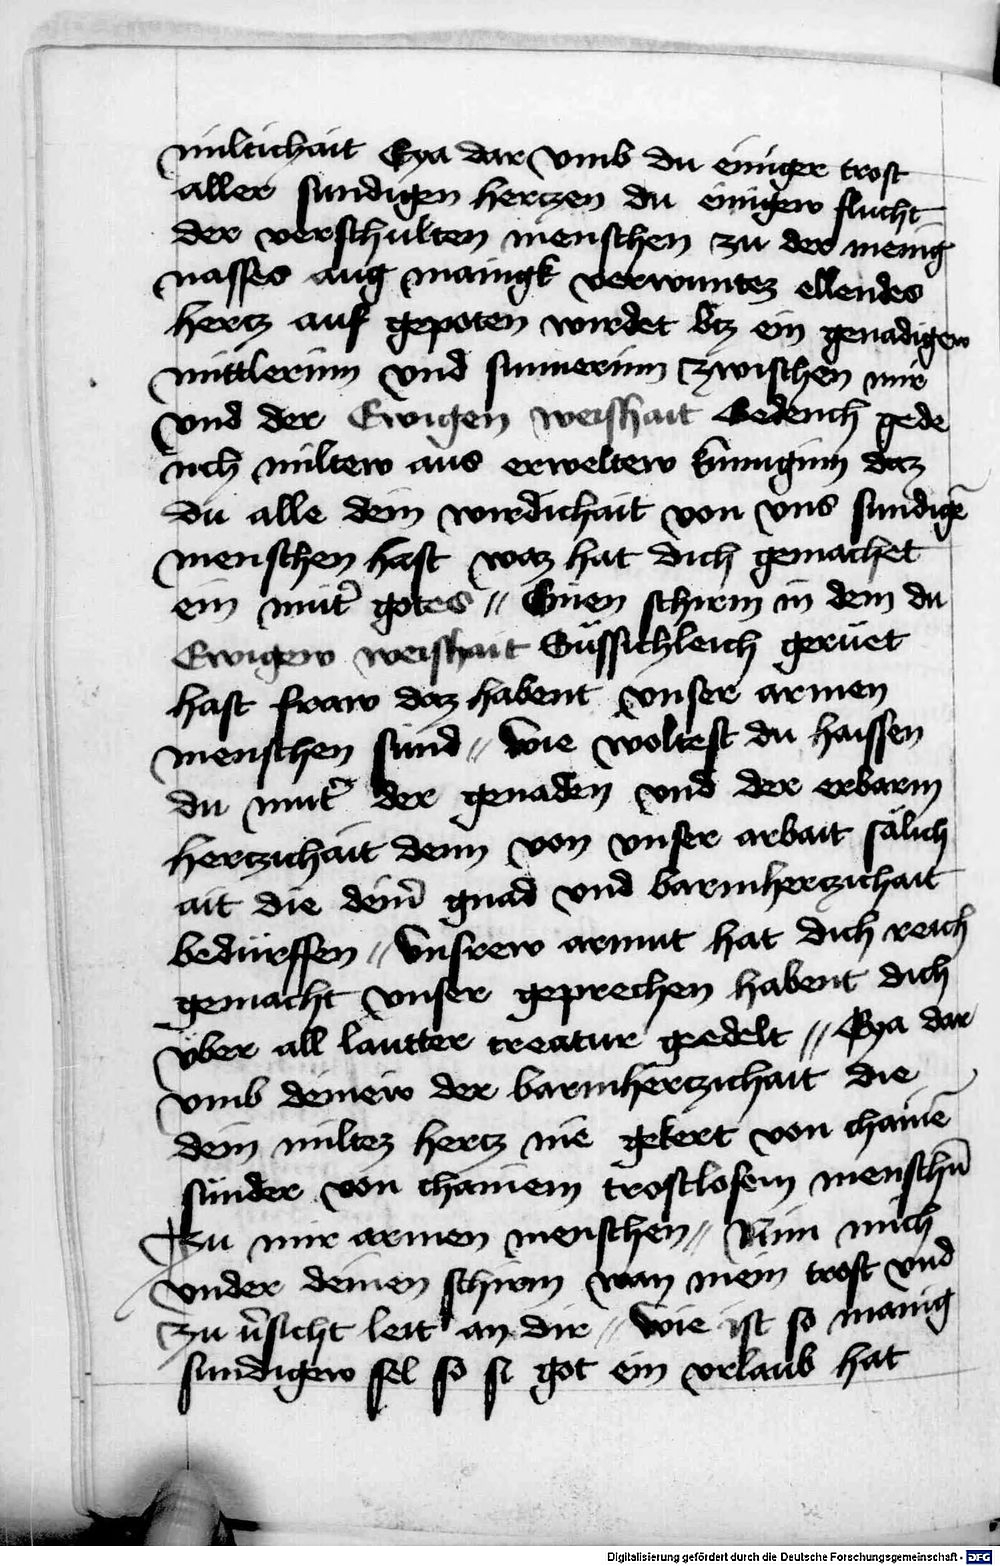 miltichait Eya dar vmb du einiger trost
aller sundigen hertzen du einigew flucht
der verschulten menschen zu der menig
nasses aug maingk verwuntez ellendes
hertz auf gepoten wirdet bis ein genadigew
mittlerinn vnd sunnerinn zwischen mir
vnd der Ewigen weishait Gedench gede
nch miltew aus erweltew kunniginn daz
du alle dein wirdichait von vns sundigē
menschen hast waz hat dich gemachet
ein mut̄ gotes // Einen schirm in dem du
Ewigew weishait Süssichleich gerüet
hast fraw daz habent vnser armen
menschen sünd // Wie woltest du haissen
du mut̄ der genaden vnd der erbarm
hertzichait denn von vnser arbait sälich
ait die dein̄ gnad vnd barmhertzichait
bedürffen // Vnsrew armut hat dich reich
gemacht vnser geprechen habent dich
vber all lautter creatur geedelt // Eya dar
vmb deinew der barmhertzichait die
dein miltez hertz nie gekert von chainē
sünder von chainem trostlosem menschn̄
Zu mir armen menschen // Nim mich
vnder deinen schirm wan mein trost vnd
zu v̄sicht leit an dir // Wie ist so manig
sundigew sel so si got ein vrlaub hat
Digitalisierung gefördert durch die Deutsche Forschungsgemeinschaft - DFG